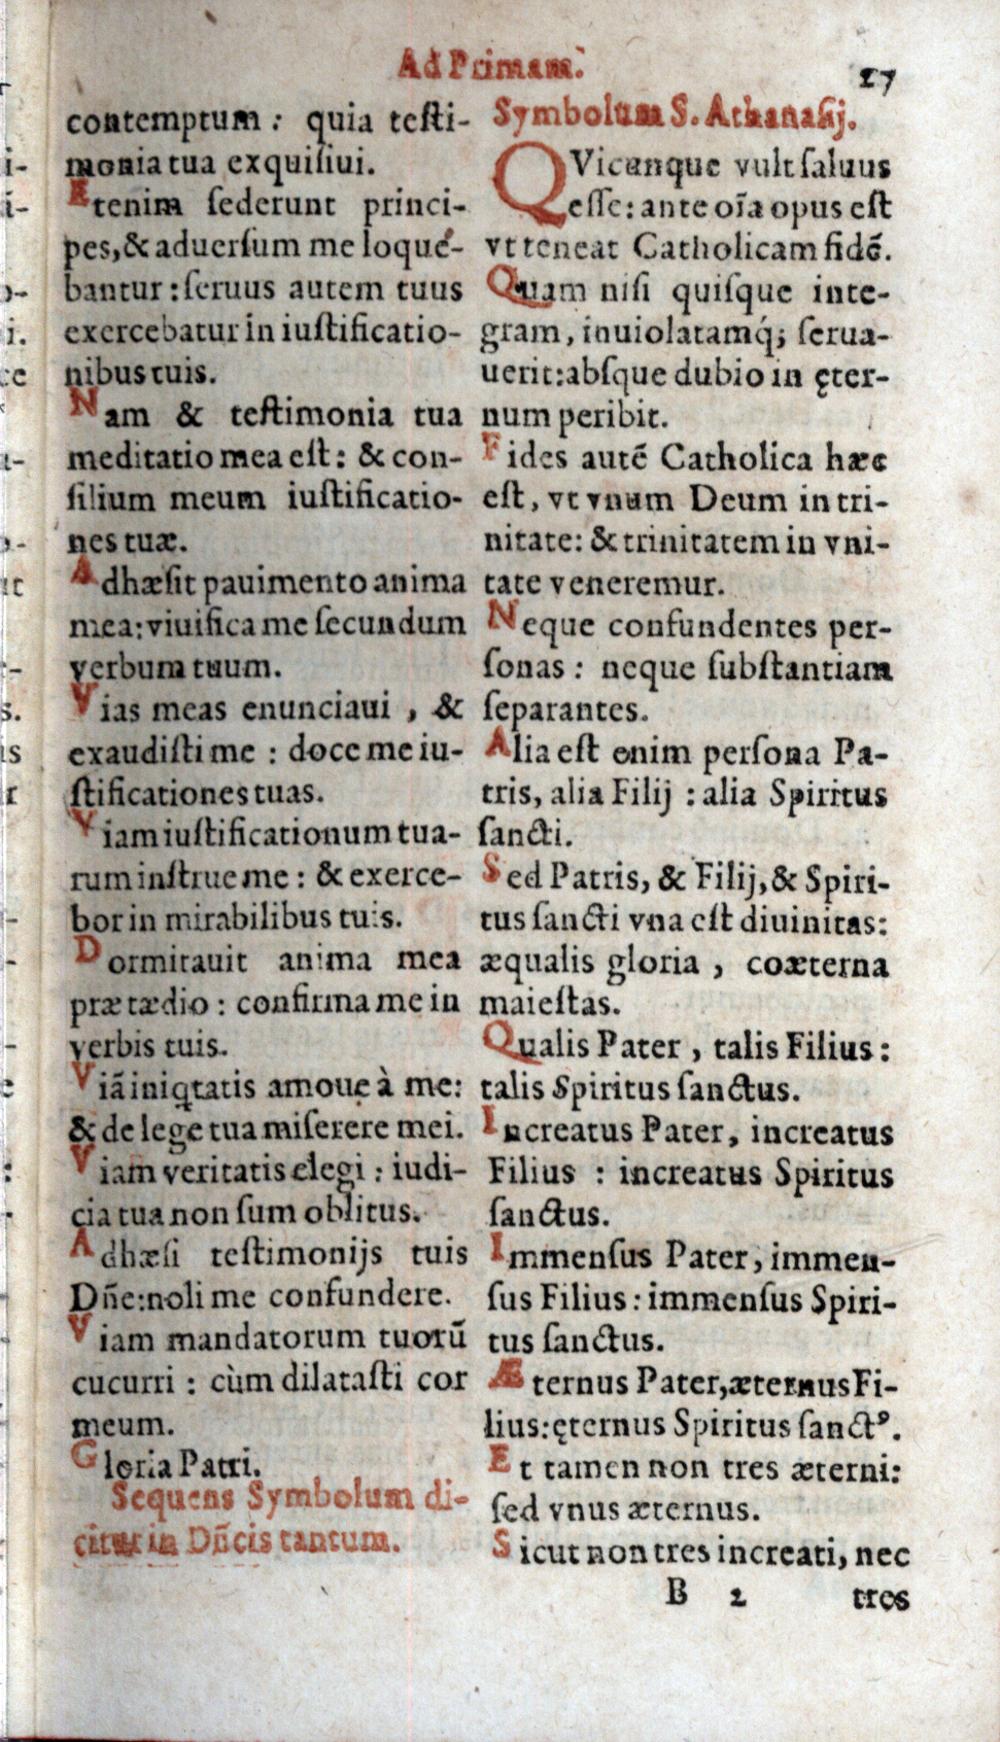 Ad Primam.
27
contemptum : quia testi-
monia tua exquisiui.
Etenim sederunt princi-
pes, & aduersum me loque-
bantur : seruus autem tuus
exercebatur in iustificatio-
nibus tuis.
Nam & testimonia tua
meditatio mea est : & con-
silium meum iustificatio-
nes tuæ.
Adhæsit pauimento anima
mea : viuifica me secundum
verbum tuum.
Vias meas enunciaui , &
exaudisti me : doce me iu-
stificationes tuas.
Viam iustificationum tua-
rum instrue me : & exerce-
bor in mirabilibus tuis.
Dormitauit anima mea
præ tædio : confirma me in
verbis tuis.
Viã iniqtatis amoue à me:
& de lege tua miserere mei.
Viam veritatis elegi : iudi-
cia tua non sum oblitus.
Adhæsi testimonijs tuis
Dñe: noli me confundere.
Viam mandatorum tuorũ
cucurri : cùm dilatasti cor
meum.
Gloria Patri.
Sequens Symbolum di-
citur in Dñcis tantum.
Symbolum S. Athanasij.
QVicunque vult saluus
esse: ante oĩa opus est
vt teneat Catholicam fidẽ.
Quam nisi quisque inte-
gram, inuiolatamq́; serua-
uerit: absque dubio in ęter-
num peribit.
Fides autẽ Catholica hæc
est, vt vnum Deum in tri-
nitate: & trinitatem in vni-
tate veneremur.
Neque confundentes per-
sonas : neque substantiam
separantes.
Alia est enim persona Pa-
tris, alia Filij : alia Spiritus
sancti.
Sed Patris, & Filij, & Spiri-
tus sancti vna est diuinitas:
æqualis gloria , coæterna
maiestas.
Qualis Pater , talis Filius :
talis Spiritus sanctus.
Increatus Pater, increatus
Filius : increatus Spiritus
sanctus.
Immensus Pater, immen-
sus Filius : immensus Spiri-
tus sanctus.
Æternus Pater, æternus Fi-
lius: ęternus Spiritus sanctꝰ.
Et tamen non tres æterni:
sed vnus æternus.
Sicut non tres increati, nec
B 2
tres